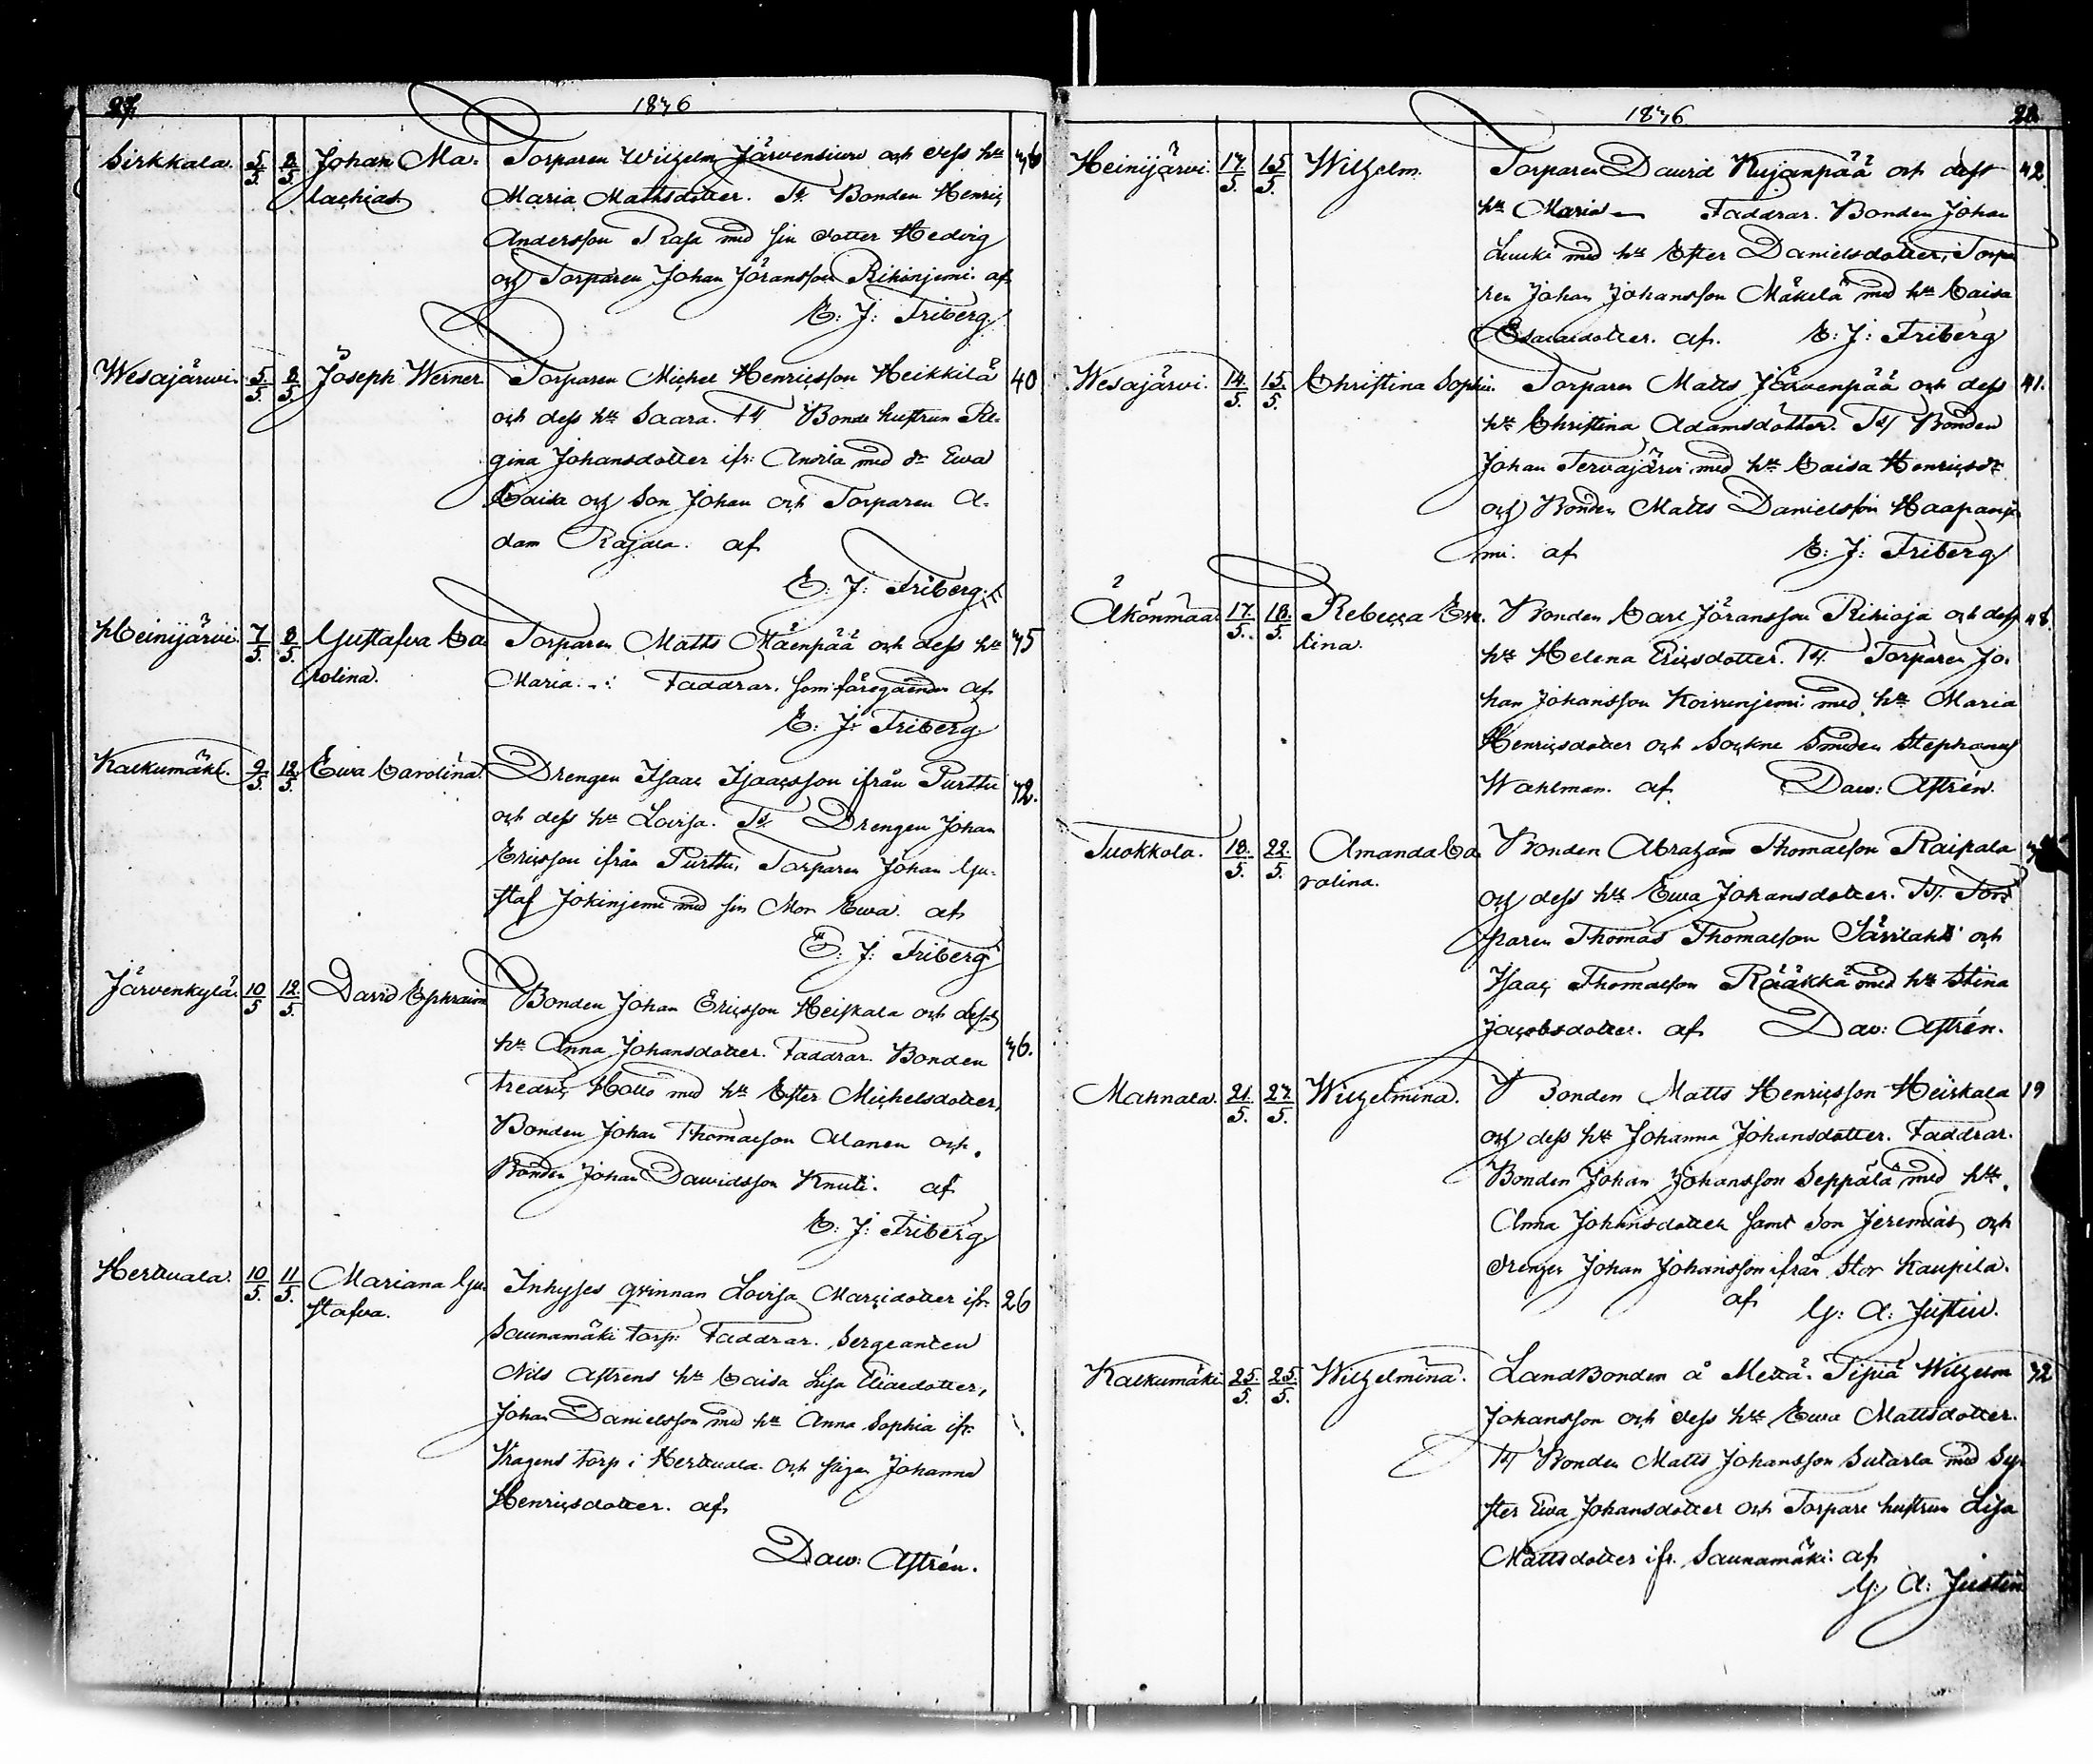 27.
1876
Sirkkala. 5/5. 8/5. Johan Ma- Torparen Wilhelm Järvensiuu och dess hu 36
lachias Maria Mathsdotter. Tt. Bonden Henric
Andersson Rasa med sin dotter Hedvig
och Torparen Johan Jöransson Rihinjemi. af
E: J: Friberg.
Wesajärwi. 5/5. 8/5. Joseph Werner. Torparen Michel Henricsson Heikkilä 40
och dess hu Saara. Tt Bonde hustrun Re-
gina Johansdotter ifr: Anola med dr Ewa
Caisa och Son Johan och Torparen A-
dam Rajala. af
E: J: Friberg.
Heinijärvi. 7/5. 8/5. Gustafva Ca Torparen Matts Mäenpää och dess hu 35
rolina. Maria. Faddrar. som föregående af
E: J: Friberg.
Kalkumäki. 9/5. 12/5. Ewa Carolina. Drengen Isaac Isaacsson ifrån Purttu 32.
och dess hu Lovisa. Tt. Drengen Johan
Ericsson ifrån Purttu, Torparen Johan Gu-
staf Jokinjemi med sin Mor Ewa. af
E: J: Friberg
Järvenkylä. 10/5 12/5. David Ephraim Bonden Johan Ericsson Heiskala och dess
hu Anna Johansdotter. Faddrar. Bonden 36.
Fredric Hollo med hu Ester Michelsdotter,
Bonden Johan Thomasson Alanen och
Bonden Johan Dawidsson Knuti. af
E: J: Friberg
Hertuala. 10/5. 11/5. Mariana Gu- Inhyses qvinnan Lovisa Marcidotter ifr: 26
stafva. Saunamäki torp: Faddrar. Sergeanten
Nils Astrens hu Caisa Lisa Eliaedotter,
Johan Danielsson med hu Anna Sophia ifr:
Kragens torp i Hertuala. Och pigan Johanna
Henricsdotter. af
Daw: Astrén.
1876.
28.
Heinijärvi. 17/5. 15/5. Wilhelm. Torparen Dawid Kujanpää och dess 42.
hu Maria Faddrar. Bonden Johan
Luuki med hu Ester Danielsdotter, Torpa
ren Johan Johansson Mäkelä med hu Caisa
Esaiaedotter. af. E: J: Friberg
Wesajärvi. 14/5. 15/5. Christina Sophia. Torparen Matts Järvenpää och dess 41.
hu Christina Adamsdotter. Tt Bonden
Johan Tervajärvi med hu Caisa Henricsdr
och Bonden Matts Danielsson Haapanje
mi. af E: J: Friberg
Äkönmaa 17/5. 18/5. Rebecca Eve- Bonden Carl Jöransson Rihioja och dess 48.
lina. hu Helena Ericsdotter. Tt. Torparen Jo-
han Johansson Koivunjemi med hu Maria
Henricsdotter och Sockne Smeden Stephanus
Wahlman. af Daw: Astrén.
Tuokkola. 18/5. 22/5. Amanda Ca Bonden Abraham Thomasson Raipala
rolina. och dess hu Ewa Johansdotter. Tt. Tor-
paren Thomas Thomasson Sävilahti och
Isaac Thomasson Rääkkä med hu Stina
Jacobsdotter. af Daw: Astrén.
Mahnala. 21/5. 27/5. Wilhelmina. Bonden Matts Henricsson Heiskala 19
och dess hu Johanna Johansdotter. Faddrar.
Bonden Johan Johansson Seppälä med hu
Anna Johansdotter samt Son Jeremias, och
drengen Johan Johansson ifrån Stor Kaupila.
af G: A: Justin.
Kalkumäki. 25/5. 25/5. Wilhelmina. LandBonden å Mella Wilhelm 32
Johansson och dess hu Ewa Mattsdotter.
Tt Bonden Matts Johansson Sutarla med Sy-
ster Ewa Johansdotter och Torpare hustrun Lisa
Mattsdotter ifr. Saunamäki: af
G: A: Justin